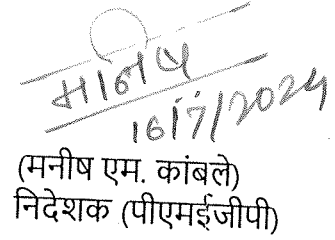 मनिष
16/7/2024
(मनीष एम. कांबले)
निदेशक (पीएमईजीपी)